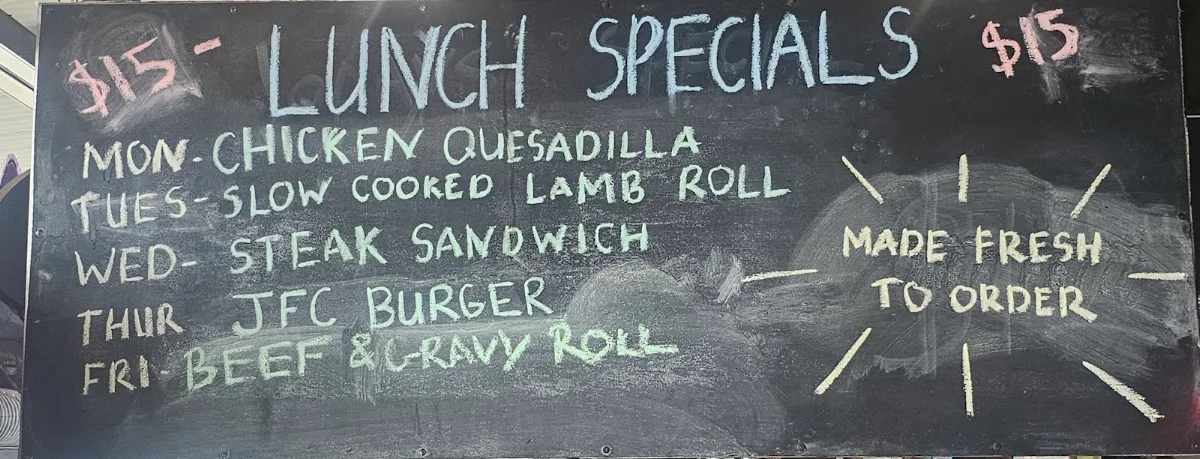 $15- LUNCH SPECIALS $15
MON- CHICKEN QUESADILLA
TUES- SLOW COOKED LAMB ROLL
WED- STEAK SANDWICH
THUR JFC BURGER
FRI- BEEF & GRAVY ROLL
MADE FRESH
TO ORDER